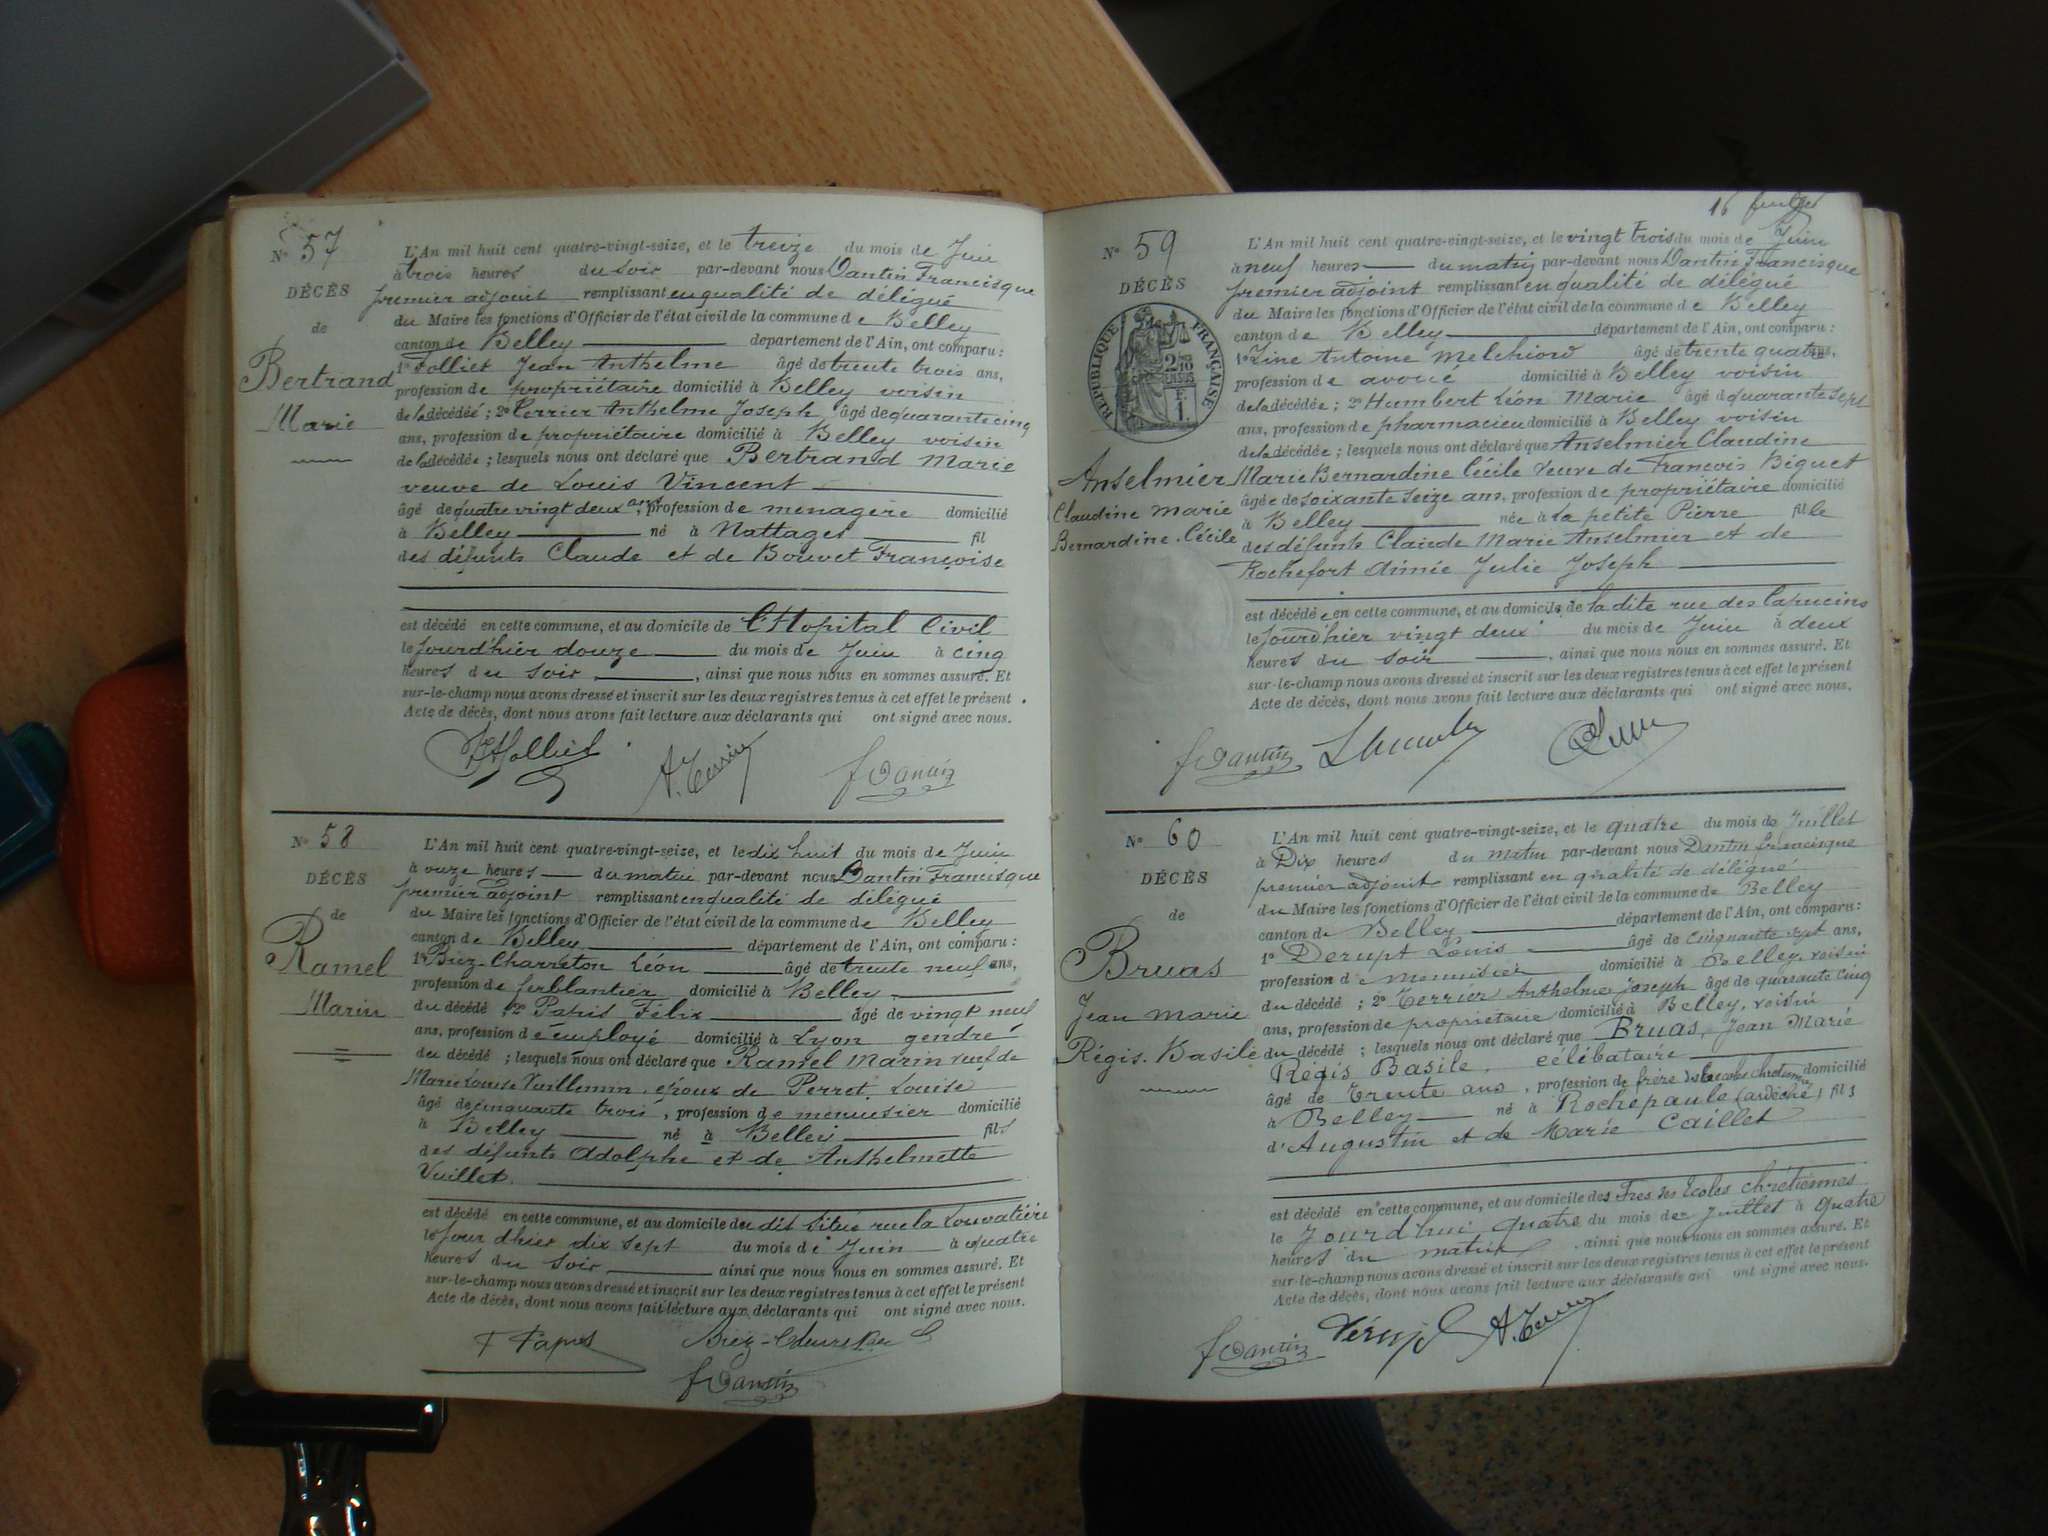 N° 57
DÉCÈS
de
Bertrand
Marie
L'An mil huit cent quatre-vingt-seize, et le treize du mois de Juin
à trois heures du soir par-devant nous Dantin Francisque
premier adjoint remplissant en qualité de délégué
du Maire les fonctions d'Officier de l'état civil de la commune de Belley
canton de Belley département de l'Ain, ont comparu :
1° Folliet Jean Anthelme âgé de trente trois ans,
profession de propriétaire domicilié à Belley voisin
de la décédée ; 2° Terrier Anthelme Joseph âgé de quarante cinq
ans, profession de propriétaire domicilié à Belley voisin
de la décédée ; lesquels nous ont déclaré que Bertrand Marie
veuve de Louis Vincent
âgé de quatre vingt deux ans, profession de ménagère domicilié
à Belley né à Nattages fil
des défunts Claude et de Bouvet Françoise
est décédé en cette commune, et au domicile de l'Hopital Civil
le jourd'hier douze du mois de Juin à cinq
heures du soir, ainsi que nous nous en sommes assuré. Et
sur-le-champ nous avons dressé et inscrit sur les deux registres tenus à cet effet le présent
Acte de décès, dont nous avons fait lecture aux déclarants qui ont signé avec nous.
JA Folliet A. Terrier F Dantin
N° 58
DÉCÈS
de
Ramel
Marin
L'An mil huit cent quatre-vingt-seize, et le dix huit du mois de Juin
à onze heures du matin par-devant nous Dantin Francisque
premier adjoint remplissant en qualité de délégué
du Maire les fonctions d'Officier de l'état civil de la commune de Belley
canton de Belley département de l'Ain, ont comparu :
1° Briz-Charreton Léon âgé de trente neuf ans,
profession de ferblantier domicilié à Belley
du décédé ; 2° Papis Félix âgé de vingt neuf
ans, profession d'employé domicilié à Lyon gendre
du décédé ; lesquels nous ont déclaré que Ramel Marin veuf de
Marie Louise Vuillemin, époux de Perrot Louise
âgé de cinquante trois, profession de menuisier domicilié
à Belley né à Belley fils
des défunts Adolphe et de Anthelmette
Vuillet.
est décédé en cette commune, et au domicile du dit située rue la Louvatière
le jour d'hier dix sept du mois de Juin à quatre
heures du soir ainsi que nous nous en sommes assuré. Et
sur-le-champ nous avons dressé et inscrit sur les deux registres tenus à cet effet le présent
Acte de décès, dont nous avons fait lecture aux déclarants qui ont signé avec nous.
F Dantin
16
N° 59
DÉCÈS
de
RÉPUBLIQUE FRANÇAISE
Anselmier
Claudine Marie
Bernardine. Cécile
L'An mil huit cent quatre-vingt-seize, et le vingt trois du mois de Juin
à neuf heures du matin par-devant nous Dantin Francisque
premier adjoint remplissant en qualité de délégué
du Maire les fonctions d'Officier de l'état civil de la commune de Belley
canton de Belley département de l'Ain, ont comparu :
1° Antoine Melchiord âgé de trente quatre ans,
profession de avoué domicilié à Belley voisin
de la décédée ; 2° Humbert Léon Marie âgé de quarante sept
ans, profession de pharmacien domicilié à Belley voisin
de la décédée ; lesquels nous ont déclaré que Anselmier Claudine
Marie Bernardine Cécile veuve de François Biguet
âgée de soixante seize ans, profession de propriétaire domicilié
à Belley née à la petite Pierre fille
des défunts Claude Marie Anselmier et de
Rochefort Aimée Julie Joseph
est décédée en cette commune, et au domicile de la dite rue des Capucins
le jourd'hier vingt deux du mois de Juin à deux
heures du soir, ainsi que nous nous en sommes assuré. Et
sur-le-champ nous avons dressé et inscrit sur les deux registres tenus à cet effet le présent
Acte de décès, dont nous avons fait lecture aux déclarants qui ont signé avec nous.
F Dantin
N° 60
DÉCÈS
de
Bruas
Jean Marie
Régis. Basile
L'An mil huit cent quatre-vingt-seize, et le quatre du mois de Juillet
à Dix heures du matin par-devant nous Dantin francisque
premier adjoint remplissant en qualité de délégué
du Maire les fonctions d'Officier de l'état civil de la commune de Belley
canton de Belley département de l'Ain, ont comparu :
1° Derupt Louis âgé de cinquante sept ans,
profession de menuisier domicilié à Belley, voisin
du décédé ; 2° Terrier Anthelme Joseph âgé de quarante cinq
ans, profession de propriétaire domicilié à Belley, voisin
du décédé ; lesquels nous ont déclaré que Bruas, Jean Marie
Régis Basile, célibataire
âgé de Trente ans, profession de frère des écoles chrétiennes domicilié
à Belley né à Rochepaule (ardèche) fils
d'Augustin et de Marie Caillet
est décédé en cette commune, et au domicile des Fres des Ecoles chrétiennes
le Jourd'hui quatre du mois de Juillet à quatre
heures du matin, ainsi que nous nous en sommes assuré. Et
sur-le-champ nous avons dressé et inscrit sur les deux registres tenus à cet effet le présent
Acte de décès, dont nous avons fait lecture aux déclarants qui ont signé avec nous.
F Dantin A. Terrier